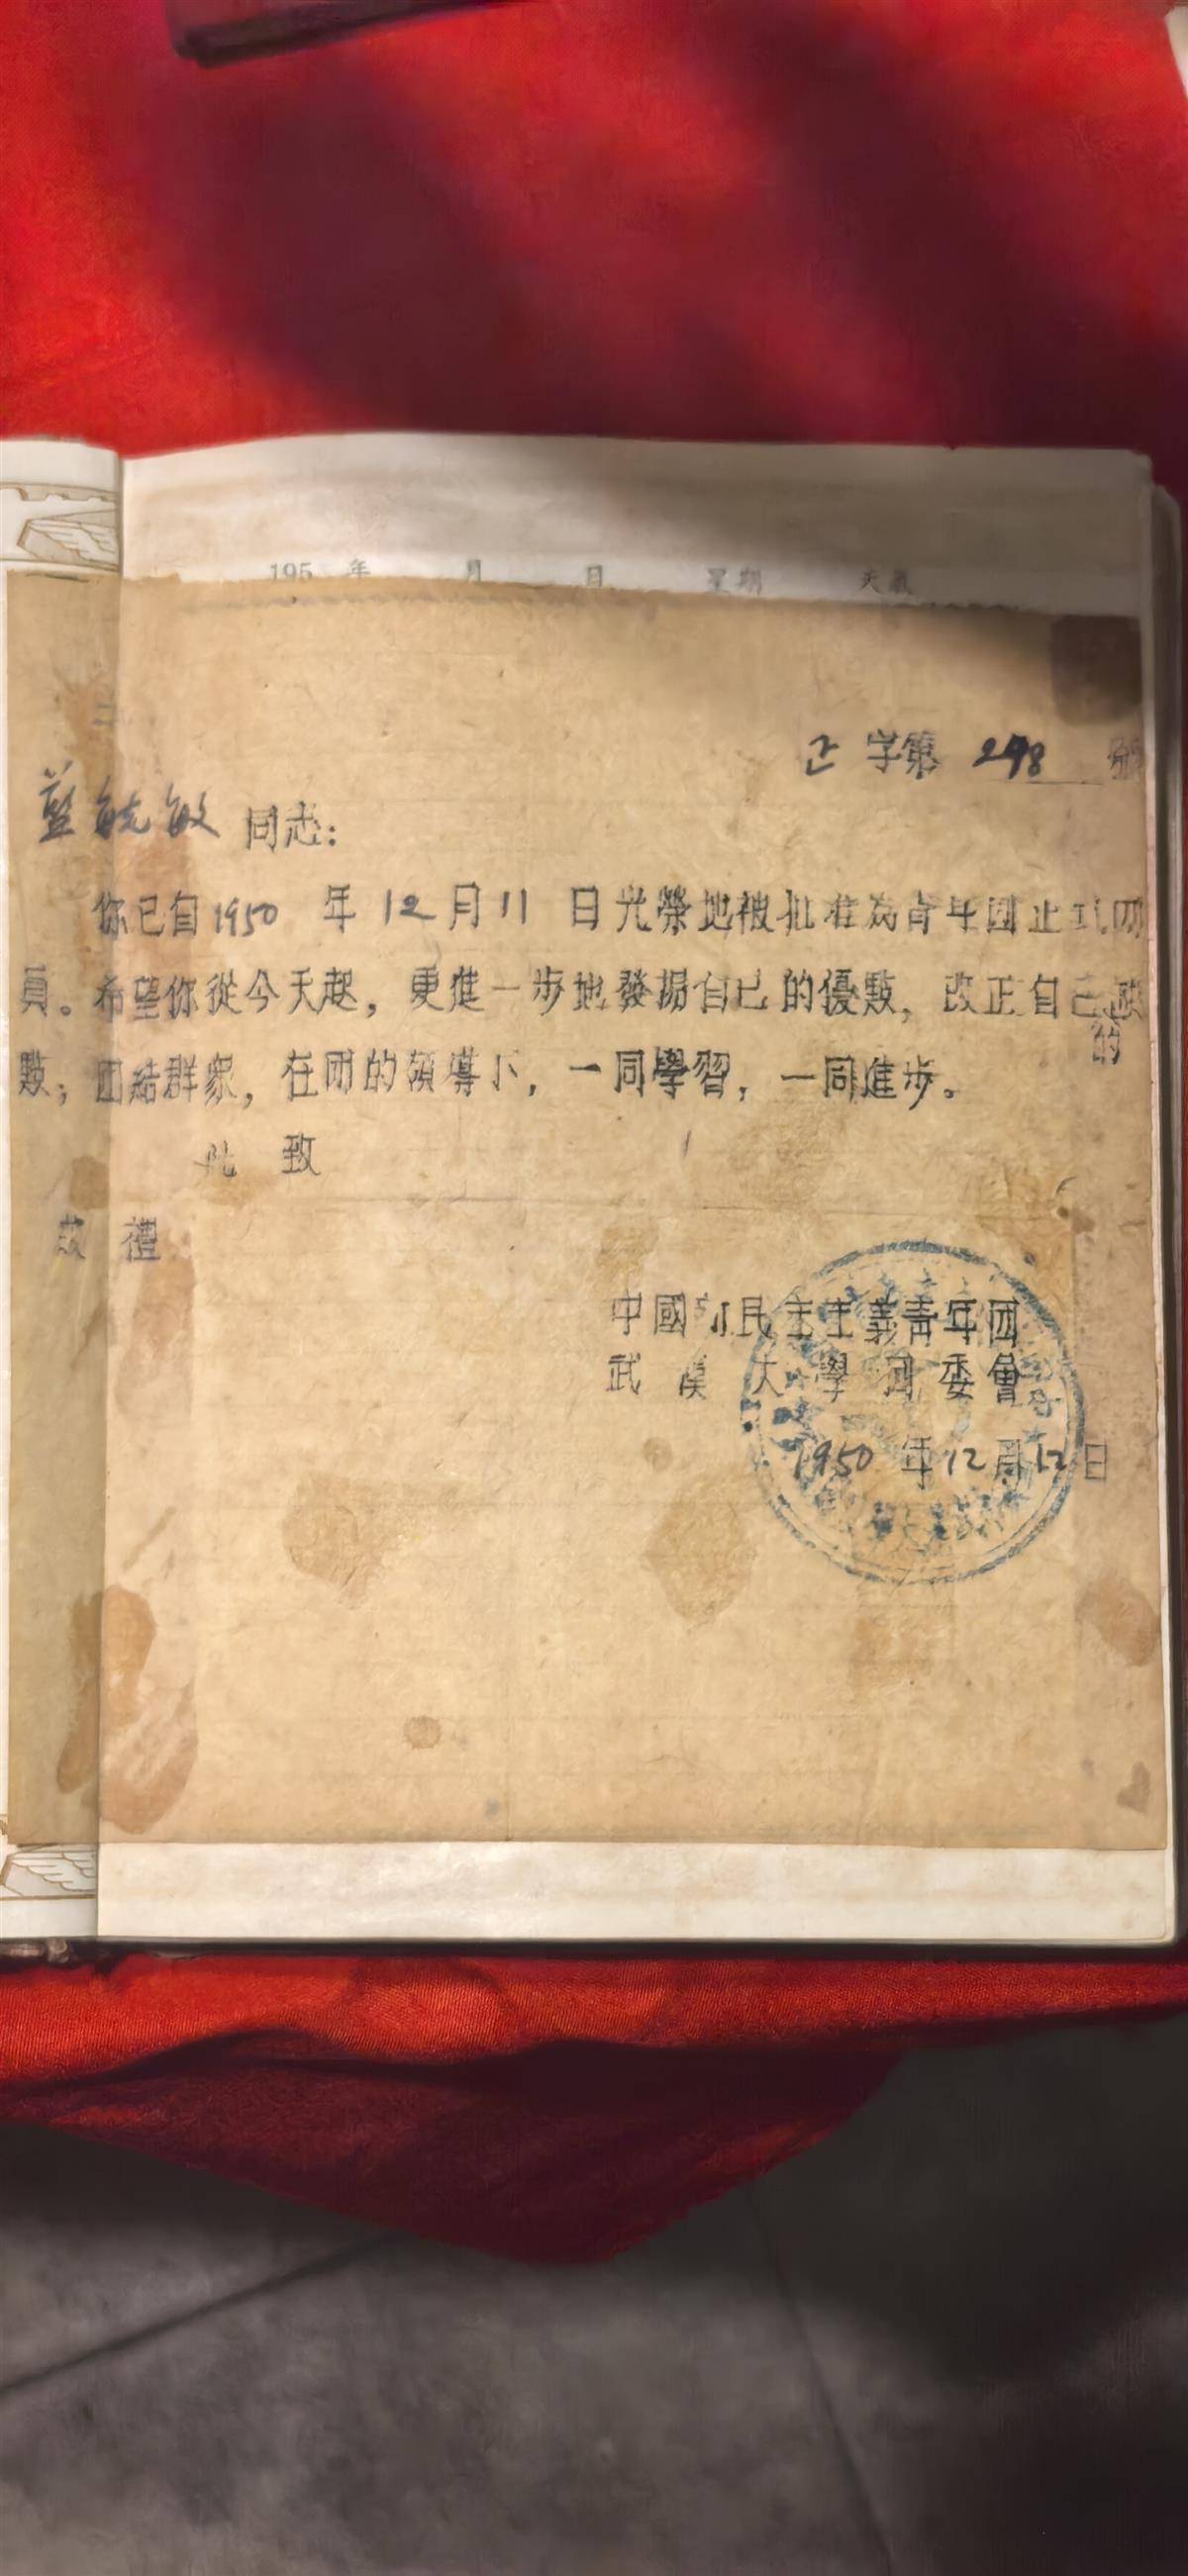 195 年 月 日 星期 天氣
字第 298 號
藍毓敏 同志：
你已自1950 年 12 月 11 日光榮地被批准為青年團正式團
員。希望你從今天起，更進一步地發揚自己的優點，改正自己的缺
點；团結群眾，在团的領導下，一同學習，一同進步。
此 致
敬 禮
中國新民主主義青年团
武 漢 大 學 團 委 會
1950 年 12 月 12 日